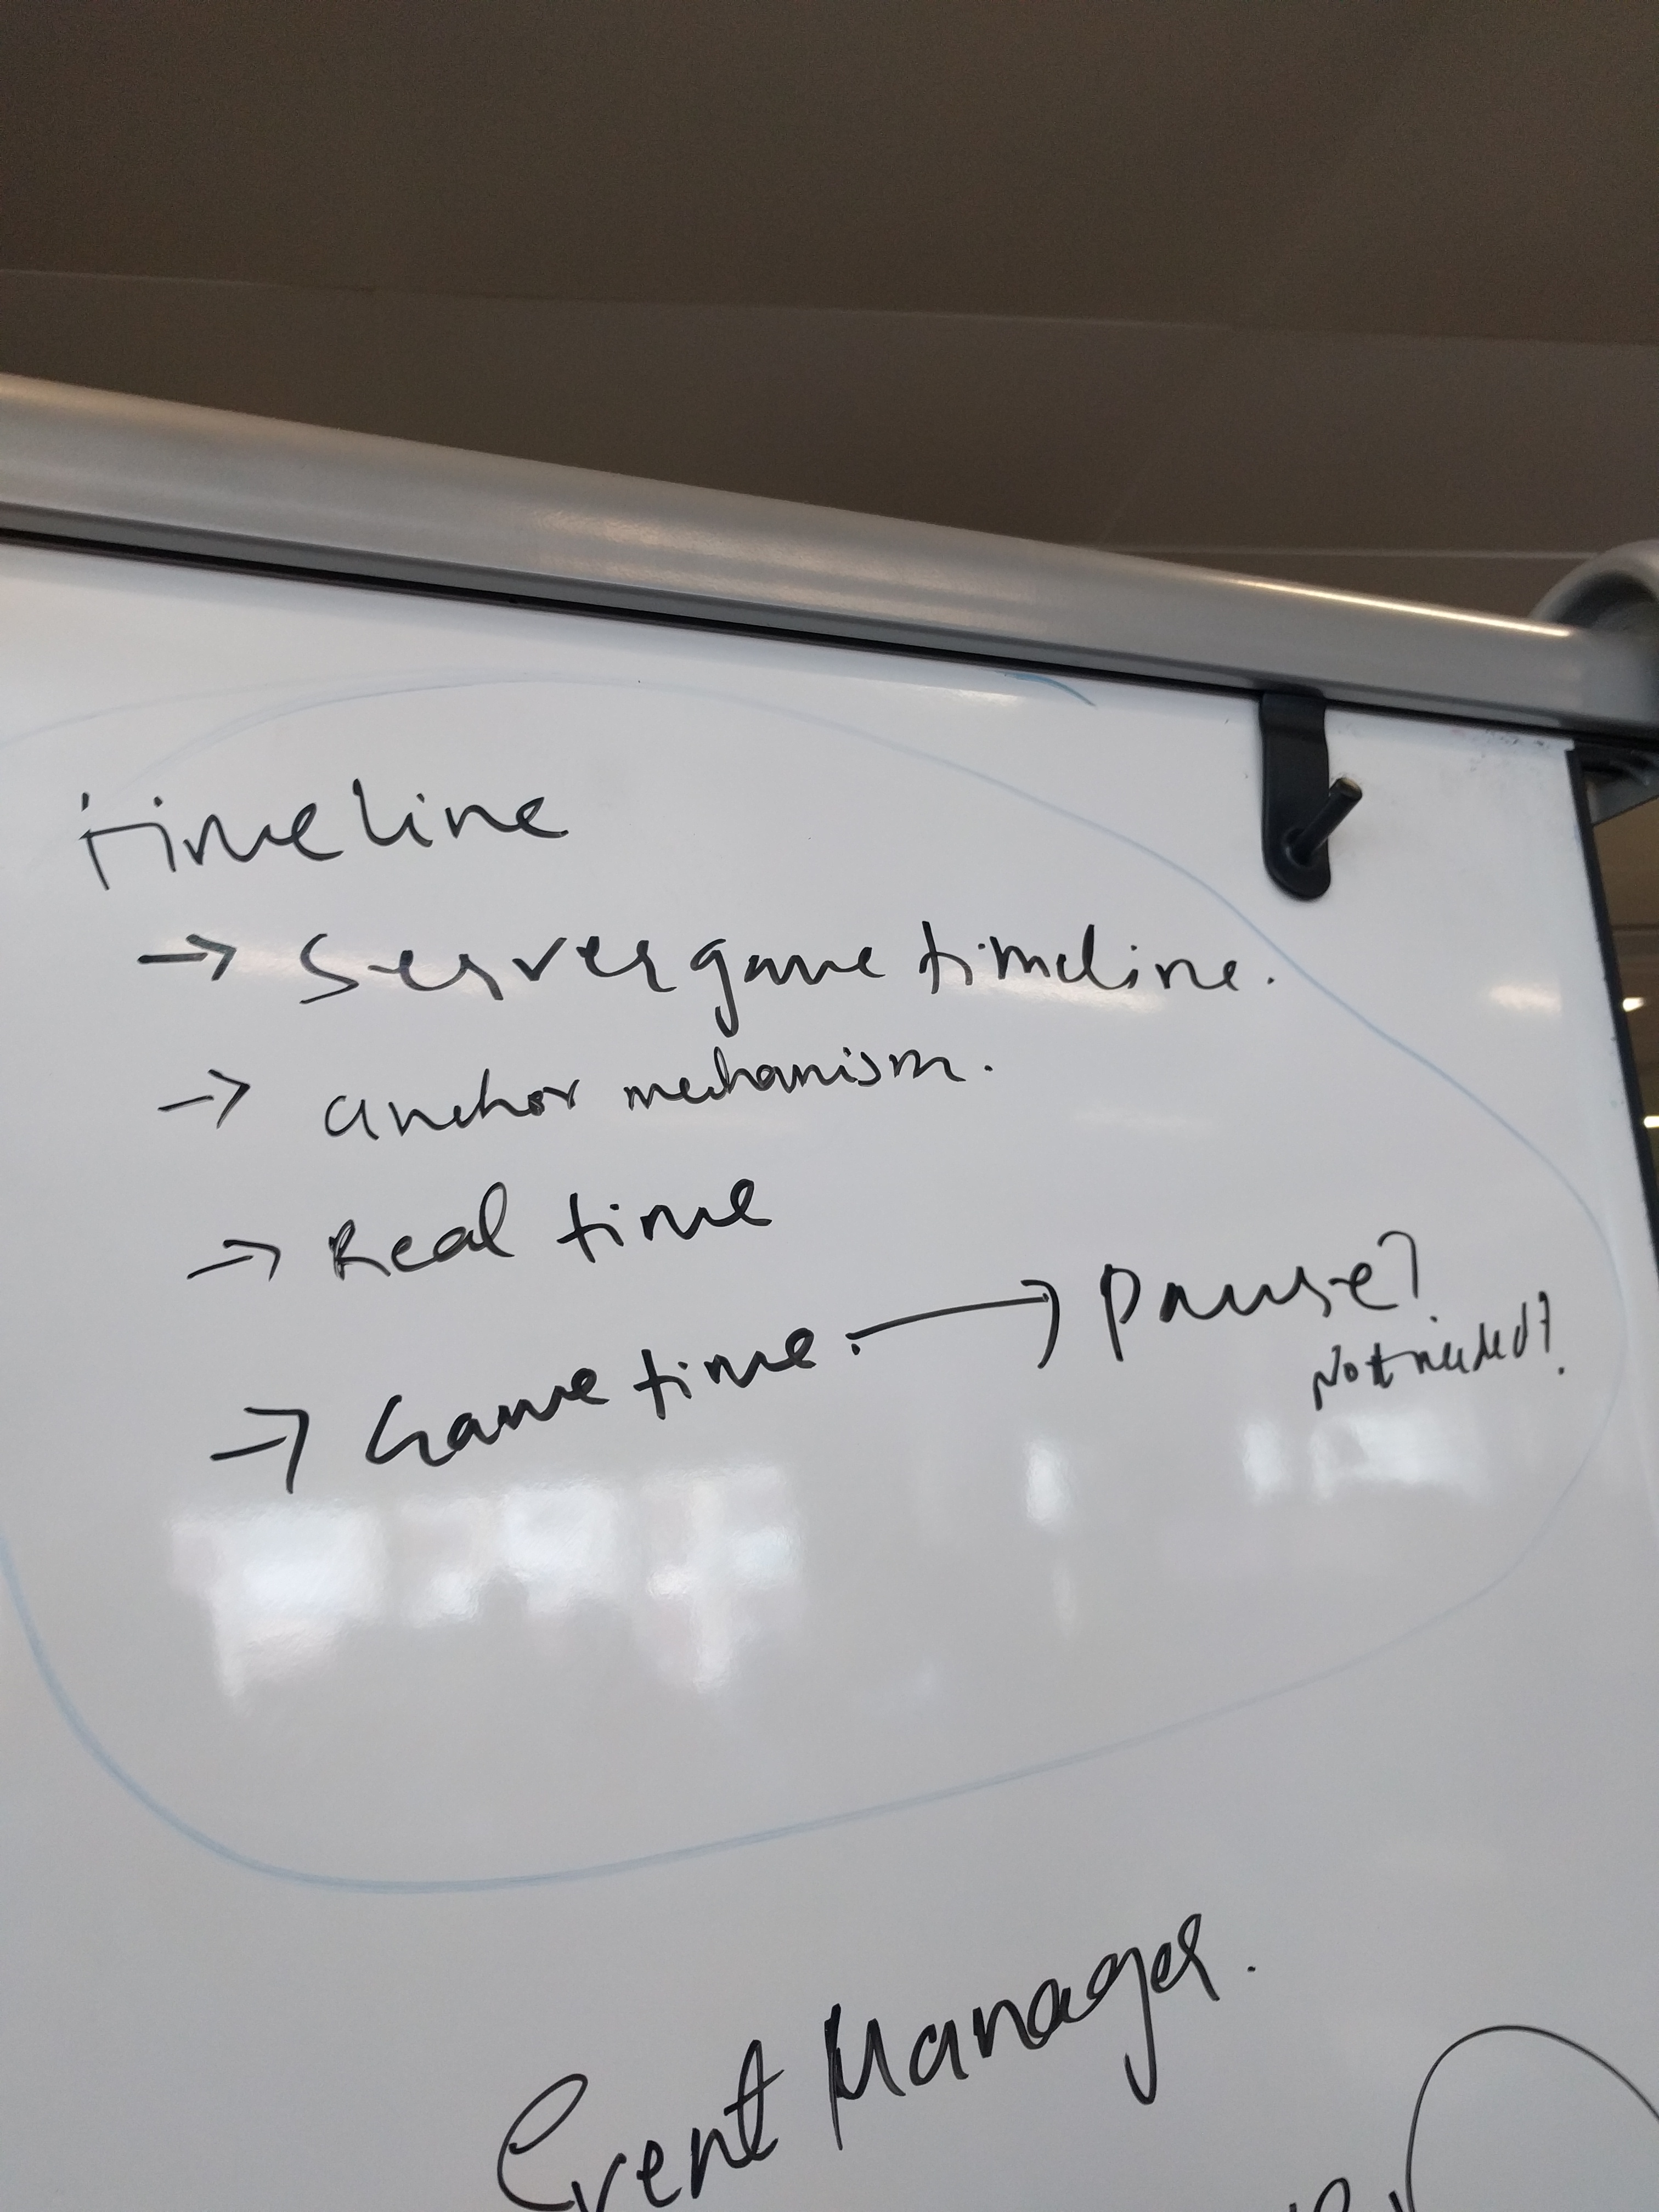 timeline
→ Server game timeline.
→ anchor mechanism.
→ Real time
→ Game time. → pause?
Not needed?
Event Manager.